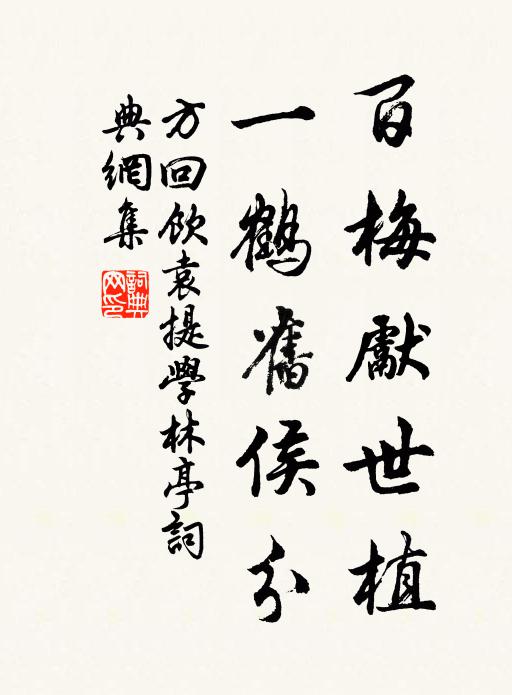 百梅獻世植
一鶴舊侯分
方回飲袁提學林亭詞
典網集
詞典網印